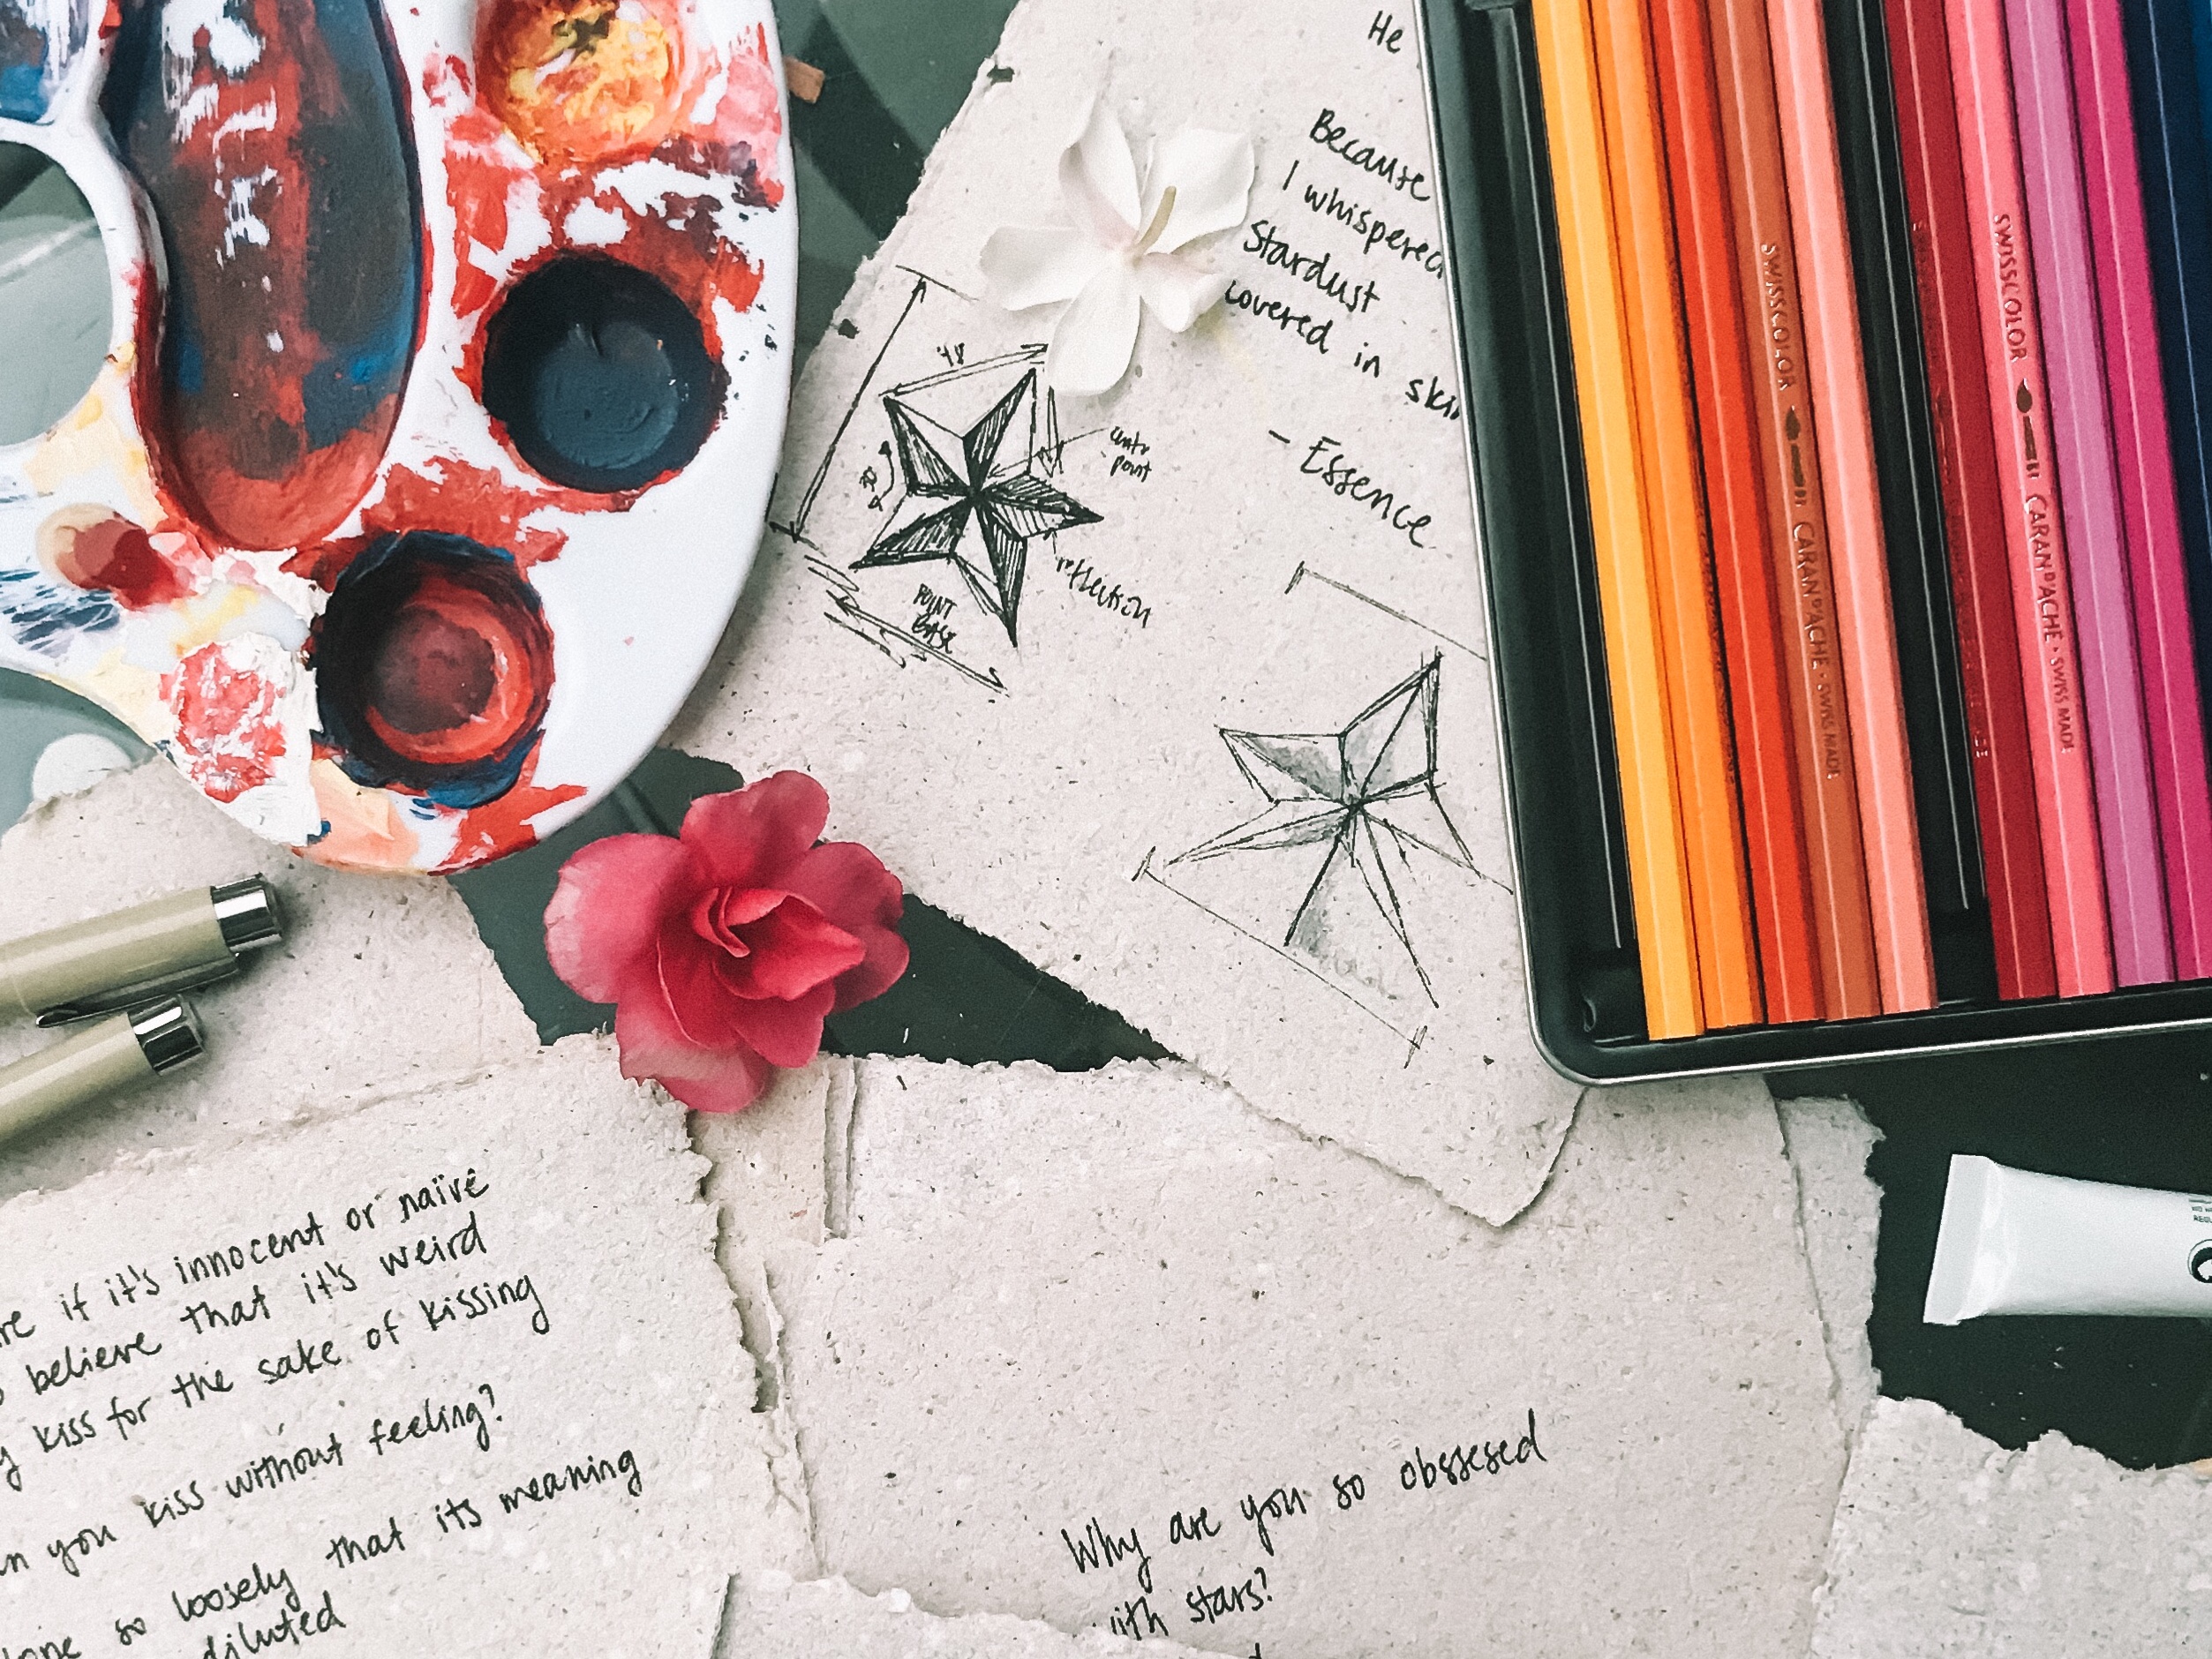 He
Because
I whispered
Stardust
covered in skin
- Essence
point
reflection
POINT
BASE
SWISSCOLOR CARAN D'ACHE • SWISS MADE
SWISSCOLOR CARAN D'ACHE • SWISS MADE
if it's innocent or naïve
believe that it's weird
kiss for the sake of kissing
you kiss without feeling?
so loosely that its meaning
diluted
Why are you so obssesed
with stars?